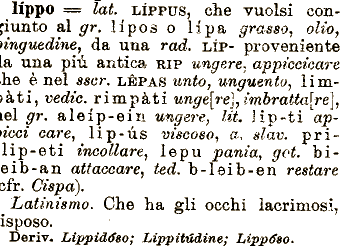 líppo = lat. LÍPPUS, che vuolsi con-
giunto al gr. lípos o lípa grasso, olio,
pinguedine, da una rad. LIP- proveniente
da una più antica RIP ungere, appiccicare
che è nel sscr. LÊPAS unto, unguento, lim-
pàti, vedic. rimpàti unge[re], imbratta[re],
nel gr. aleíp-ein ungere, lit. lip-ti ap-
picci care, lip-ús viscoso, a. slav. pri-
lip-eti incollare, lepu pania, got. bi-
leib-an attaccare, ted. b-leib-en restare
(cfr. Cispa).
Latinismo. Che ha gli occhi lacrimosi,
cisposo.
Deriv. Lippidóso; Lippitúdine; Lippóso.